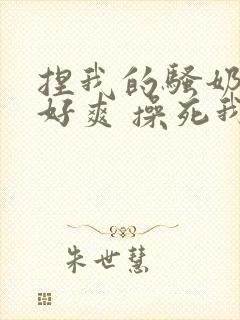 捏我的骚奶
好爽 操死我
朱世慧